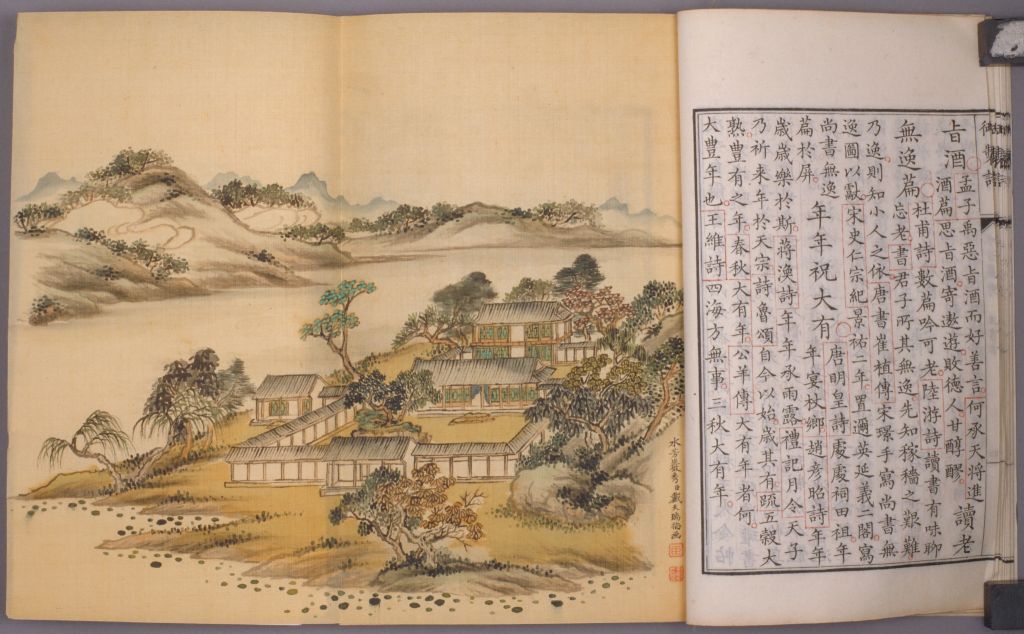 旨酒
孟子禹惡旨酒而好善言何承天將進
酒篇思旨酒寄遨遊敗德人甘醇醪
讀老
無逸篇
杜甫詩數篇吟可老陸游詩讀書有味聊
忘老書君子所其無逸先知稼穡之艱難
乃逸則知小人之依唐書崔植傳宋璟手寫尚書無
逸圖以獻宋史仁宗紀景祐二年置邇英延義二閣寫
尚書無逸
篇於屏
年年祝大有
唐明皇詩處處祠田祖年
年宴杖鄉趙彥昭詩年年
歲歲樂於斯蔣渙詩年年承雨露禮記月令天子
乃祈來年於天宗詩魯頌自今以始歲其有疏五穀大
熟豐有之年春秋大有年公羊傳大有年者何
大豐年也王維詩四海方無事三秋大有年
水芳巖秀臣戴天瑞画